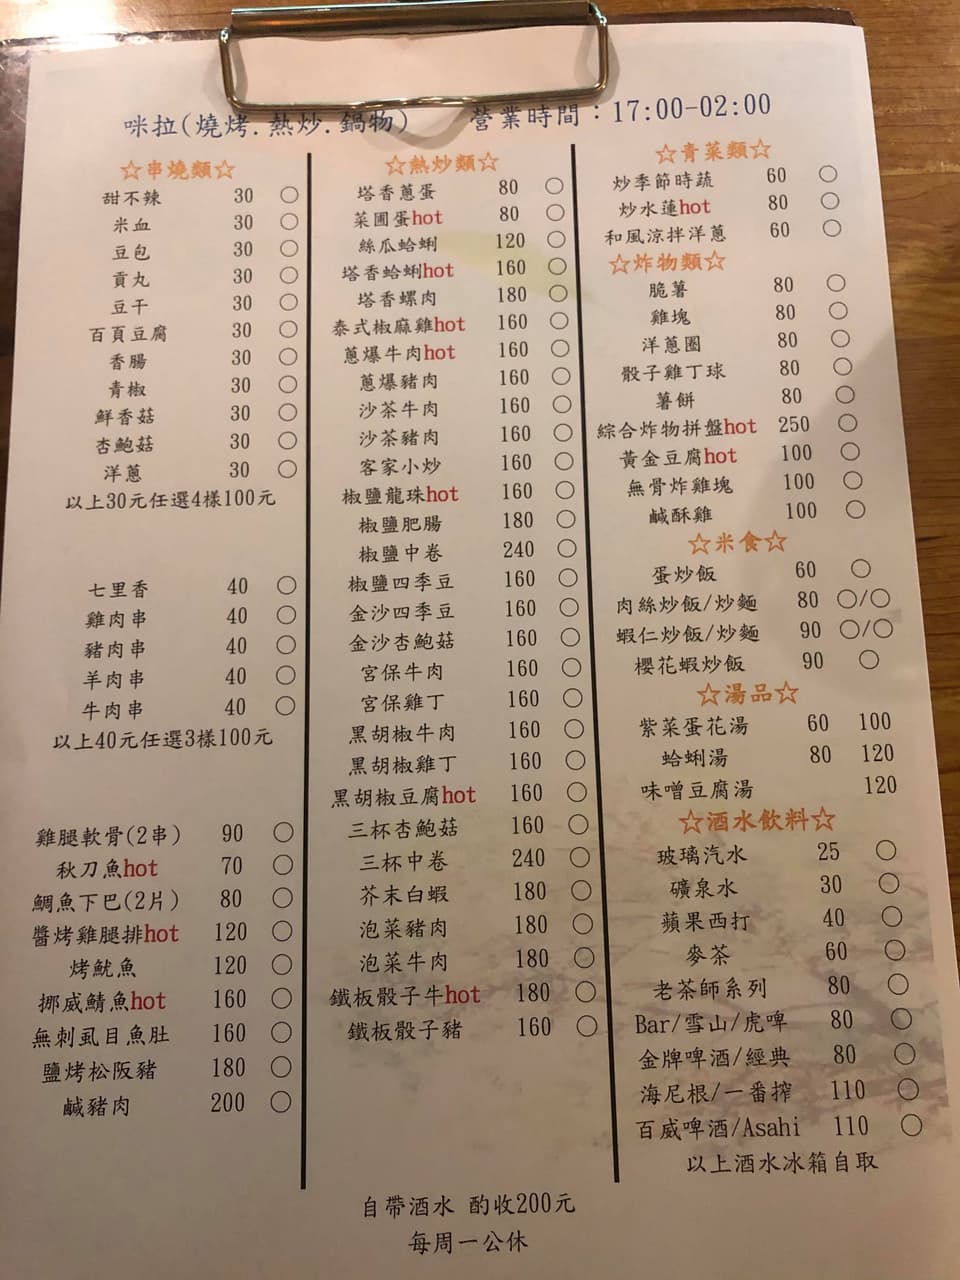 咪拉(燒烤.熱炒.鍋物) 營業時間：17:00-02:00
☆串燒類☆
甜不辣 30 ○
米血 30 ○
豆包 30 ○
貢丸 30 ○
豆干 30 ○
百頁豆腐 30 ○
香腸 30 ○
青椒 30 ○
鮮香菇 30 ○
杏鮑菇 30 ○
洋蔥 30 ○
以上30元任選4樣100元
七里香 40 ○
雞肉串 40 ○
豬肉串 40 ○
羊肉串 40 ○
牛肉串 40 ○
以上40元任選3樣100元
雞腿軟骨(2串) 90 ○
秋刀魚hot 70 ○
鯛魚下巴(2片) 80 ○
醬烤雞腿排hot 120 ○
烤魷魚 120 ○
挪威鯖魚hot 160 ○
無刺虱目魚肚 160 ○
鹽烤松阪豬 180 ○
鹹豬肉 200 ○
☆熱炒類☆
塔香蔥蛋 80 ○
菜圃蛋hot 80 ○
絲瓜蛤蜊 120 ○
塔香蛤蜊hot 160 ○
塔香螺肉 180 ○
泰式椒麻雞hot 160 ○
蔥爆牛肉hot 160 ○
蔥爆豬肉 160 ○
沙茶牛肉 160 ○
沙茶豬肉 160 ○
客家小炒 160 ○
椒鹽龍珠hot 160 ○
椒鹽肥腸 180 ○
椒鹽中卷 240 ○
椒鹽四季豆 160 ○
金沙四季豆 160 ○
金沙杏鮑菇 160 ○
宮保牛肉 160 ○
宮保雞丁 160 ○
黑胡椒牛肉 160 ○
黑胡椒雞丁 160 ○
黑胡椒豆腐hot 160 ○
三杯杏鮑菇 160 ○
三杯中卷 240 ○
芥末白蝦 180 ○
泡菜豬肉 180 ○
泡菜牛肉 180 ○
鐵板骰子牛hot 180 ○
鐵板骰子豬 160 ○
☆青菜類☆
炒季節時蔬 60 ○
炒水蓮hot 80 ○
和風涼拌洋蔥 60 ○
☆炸物類☆
脆薯 80 ○
雞塊 80 ○
洋蔥圈 80 ○
骰子雞丁球 80 ○
薯餅 80 ○
綜合炸物拼盤hot 250 ○
黃金豆腐hot 100 ○
無骨炸雞塊 100 ○
鹹酥雞 100 ○
☆米食☆
蛋炒飯 60 ○
肉絲炒飯/炒麵 80 ○/○
蝦仁炒飯/炒麵 90 ○/○
櫻花蝦炒飯 90 ○
☆湯品☆
紫菜蛋花湯 60 100
蛤蜊湯 80 120
味噌豆腐湯 120
☆酒水飲料☆
玻璃汽水 25 ○
礦泉水 30 ○
蘋果西打 40 ○
麥茶 60 ○
老茶師系列 80 ○
Bar/雪山/虎啤 80 ○
金牌啤酒/經典 80 ○
海尼根/一番搾 110 ○
百威啤酒/Asahi 110 ○
以上酒水冰箱自取
自帶酒水 酌收200元
每周一公休